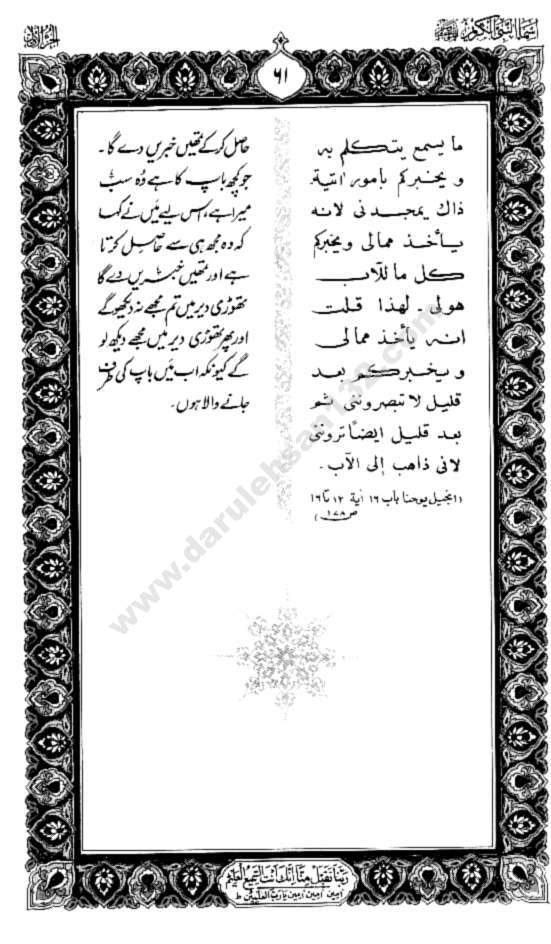 اسماء النبی الکریم ﷺ
الجزء الاول
٦١
ما يسمع يتكلم به
و يخبركم بامور اتية.
ذاك يمجدنى لانه
يأخذ ممالى ويخبركم
كل ما للآب
هولى. لهذا قلت
انه يأخذ ممالى
و يخبركم بعد
قليل لا تبصروننى ثم
بعد قليل ايضًا تروننى
لانى ذاهب إلى الآب.
(انجیل یوحنا باب ۱۶ آیة ۱۲ تا ۱۶
ص ۱۷۸)
حاصل کر کے تمھیں خبریں دے گا۔
جو کچھ باپ کا ہے وہ سب
میرا ہے، اس لیے میں نے کہا
کہ وہ مجھ ہی سے حاصل کرتا
ہے اور تمھیں خبریں دے گا
تھوڑی دیر میں تم مجھے نہ دیکھو گے
اور پھر تھوڑی دیر میں مجھے دیکھ لو
گے کیونکہ اب میں باپ کی طرف
جانے والا ہوں۔
www.darulehsan132.com
ربنا تقبل منا انك انت السميع العليم
امين امين امين يا رب العلمين ط